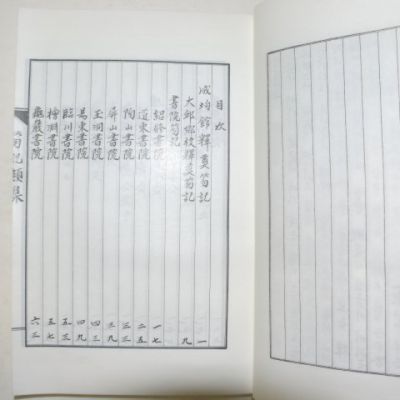 目次
成均館釋奠笏記 一
大邱鄉校釋奠笏記 九
書院笏記
紹修書院 一七
道東書院 二五
陶山書院 三三
屏山書院 三九
玉洞書院 四三
易東書院 四九
臨川書院 五三
檜淵書院 五七
龜巖書院 六三
笏記類集